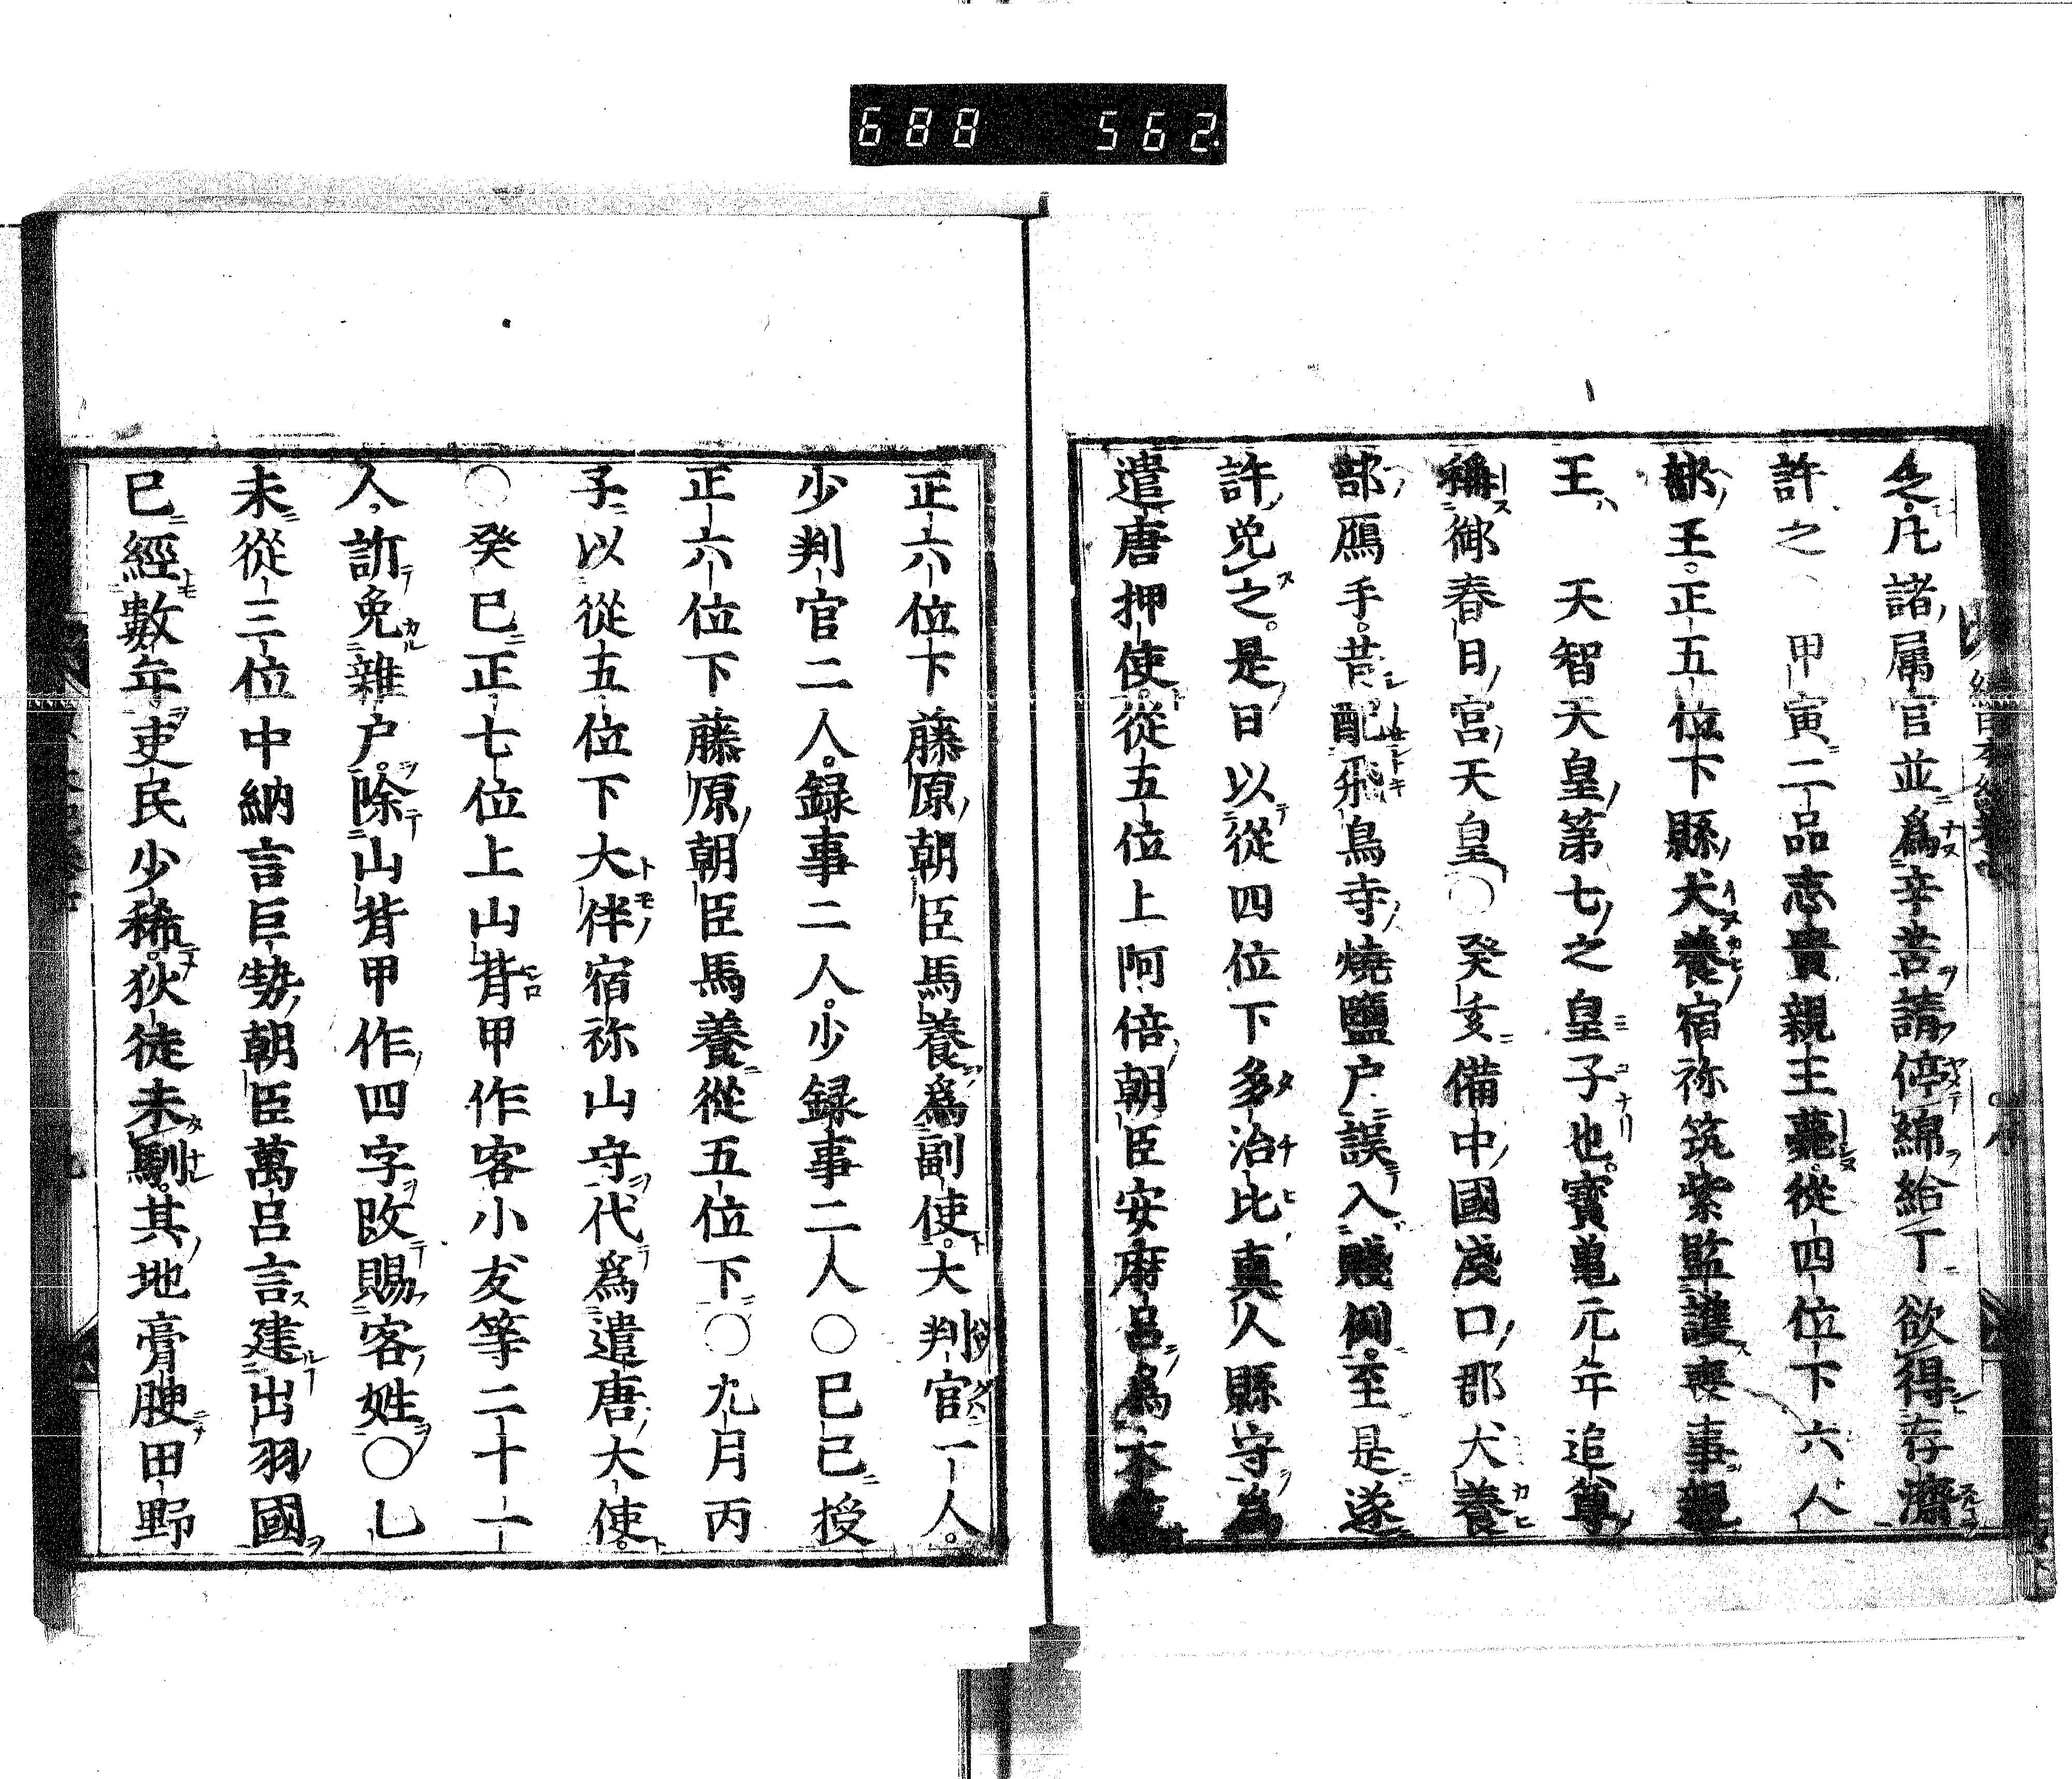 688 562
念凡諸属官並爲辛苦請停綿給丁欲得存濟
許之○甲寅二品志貴親王薨從四位下六人
部王正五位下縣犬養宿祢筑紫監護喪事親
王天智天皇第七之皇子也寳亀元年追尊
稱御春日宮天皇○癸亥備中國淺口郡犬養
部鴈手昔配飛鳥寺燒鹽户誤入賤例至是遂
許免之是日以從四位下多治比真人縣守為
遣唐押使從五位上阿倍朝臣安麻呂爲大使
正六位下藤原朝臣馬養爲副使大判官一人
少判官二人録事二人少録事二人○己巳授
正六位下藤原朝臣馬養從五位下○九月丙
子以從五位下大伴宿祢山守代爲遣唐大使
○癸巳正七位上山背甲作客小友等二十一
人訴免雜户除山背甲作四字改賜客姓○乙
未從三位中納言巨勢朝臣萬呂言建出羽國
已經數年吏民少稀狄徒未馴其地膏腴田野